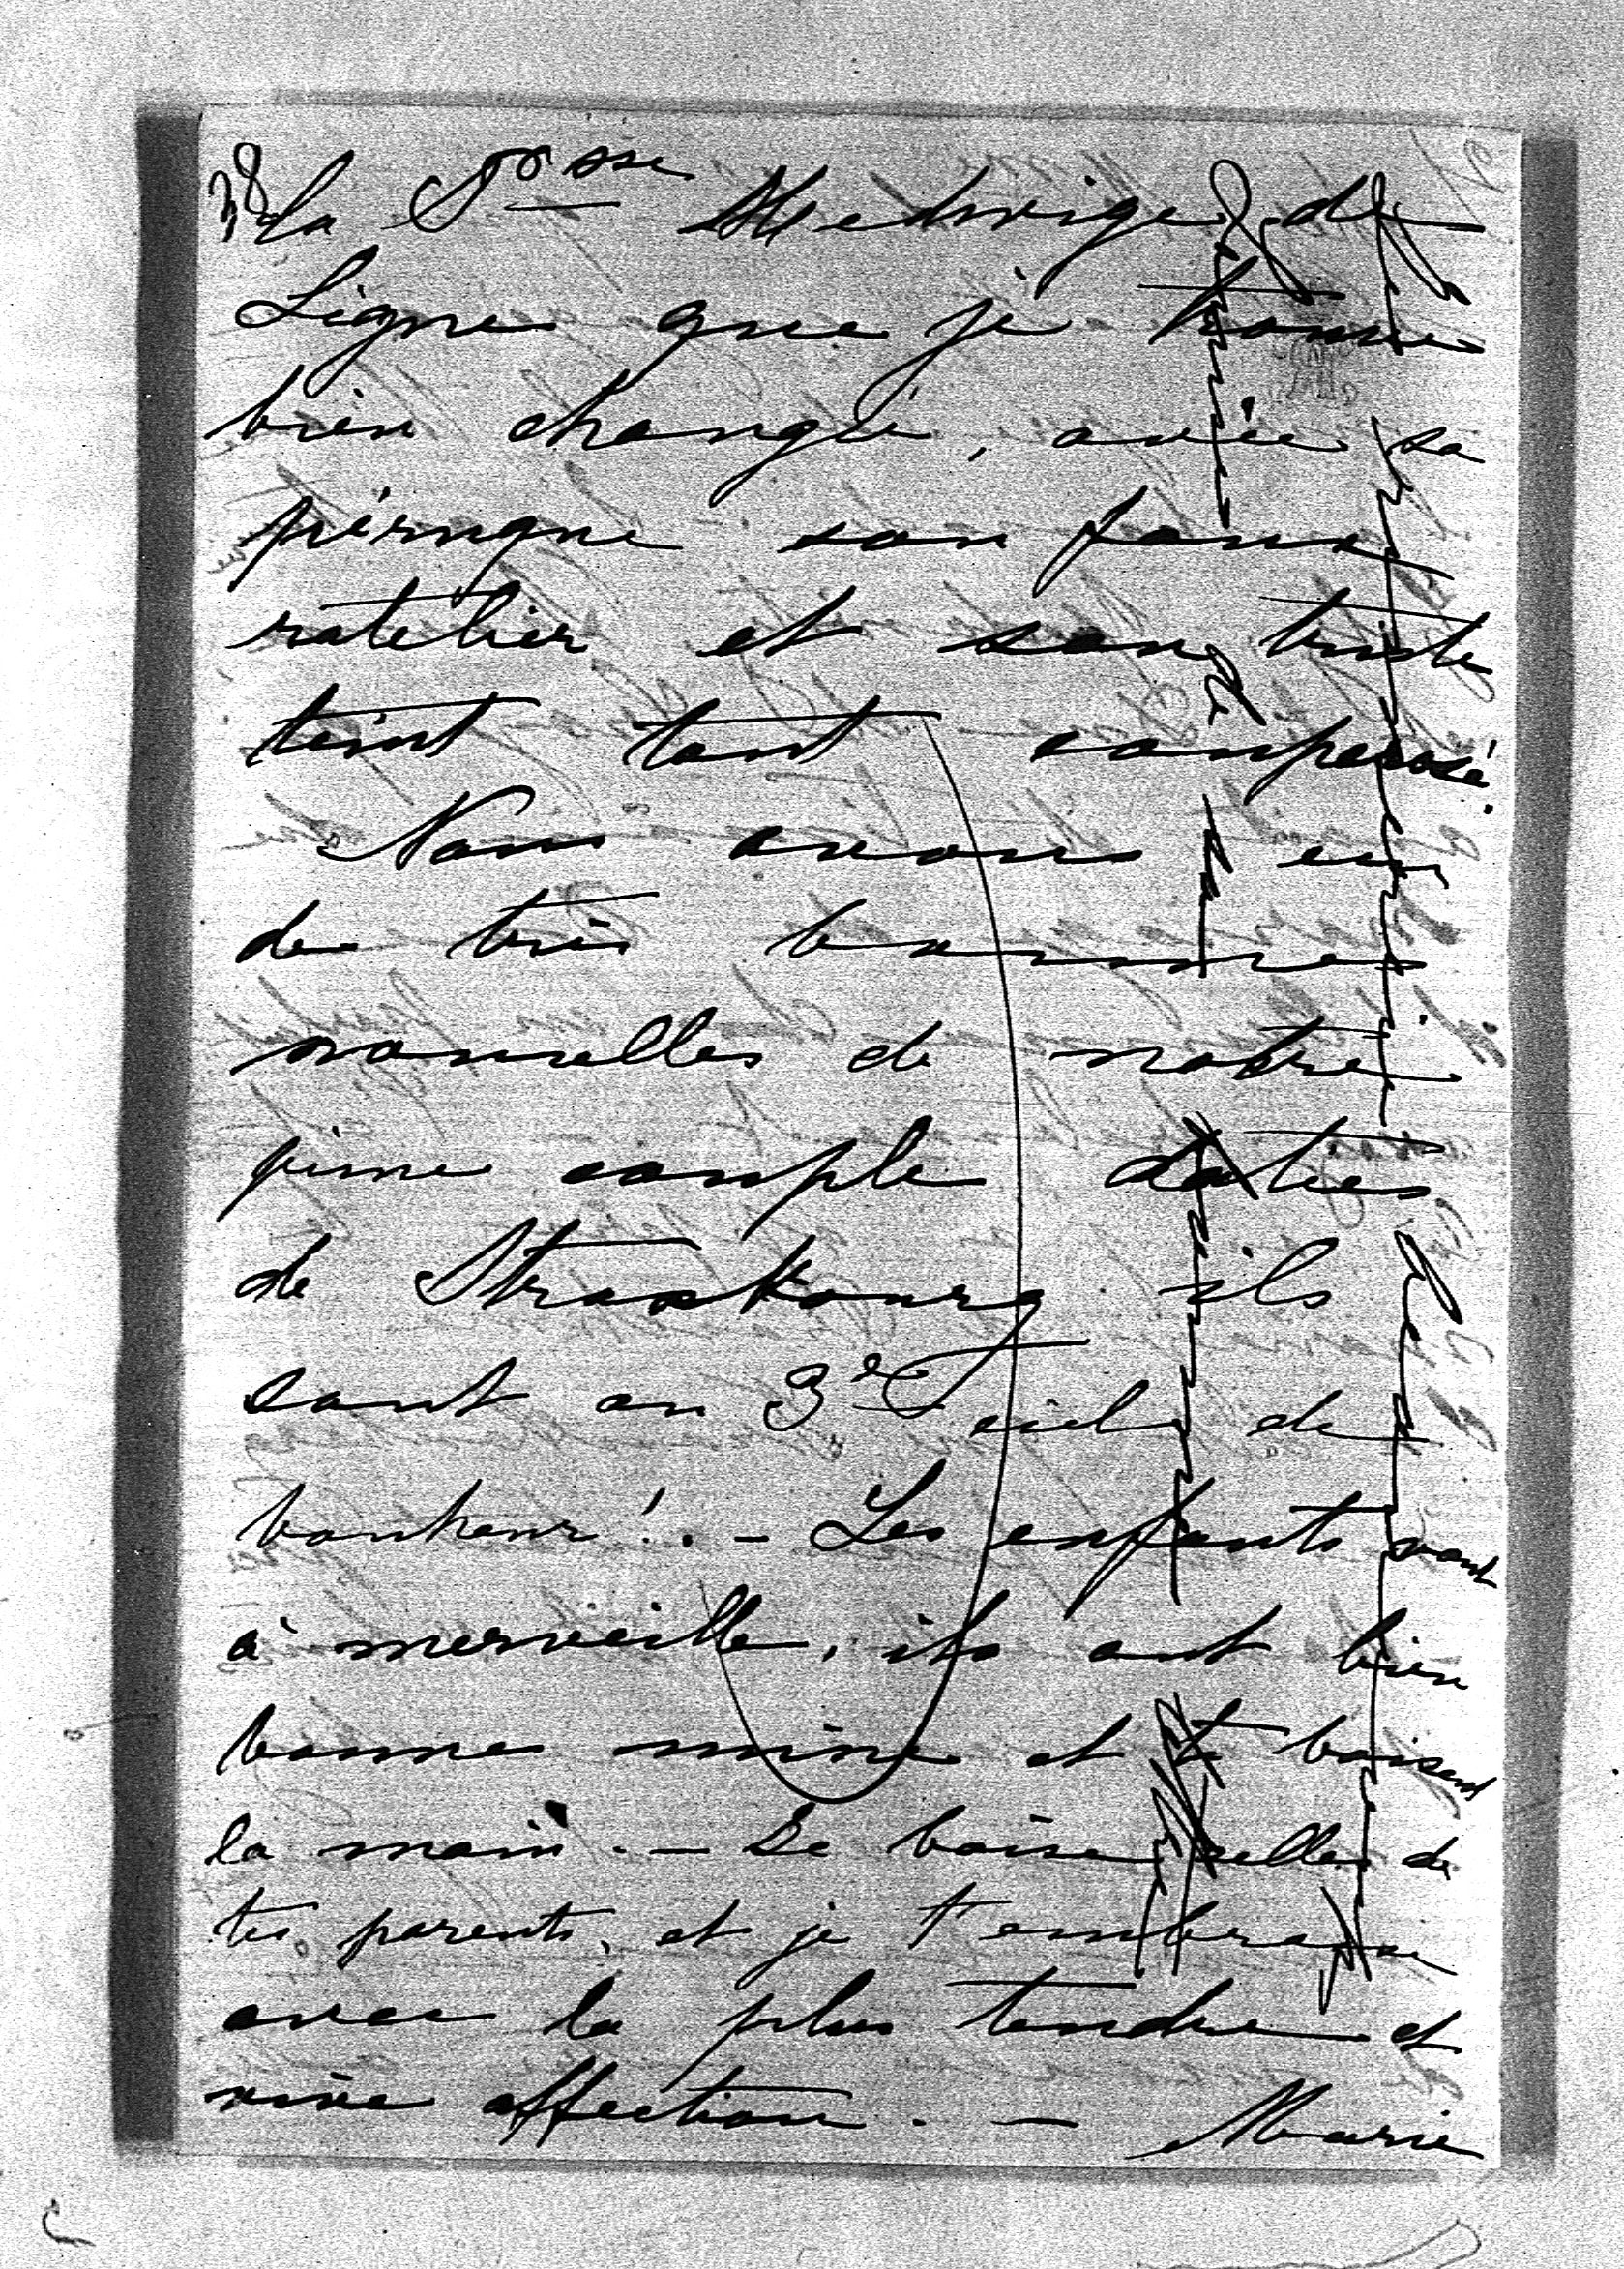 38
La Pcsse Hedwige de
Ligne que je trouve
bien changée, avec sa
péruque son faux
ratelier et son triste
teint tout couperosé.
Nous avons eu
de très bonnes
nouvelles de notre
jeune couple datées
de Strasbourg ils
sont au 3e ciel de
bonheur!. – Les enfants vont
à merveille, ils ont bien
bonne mine et te baisent
la main. – Je baise celles de
tes parents, et je t'embrasse
avec la plus tendre et
vive affection. – Marie